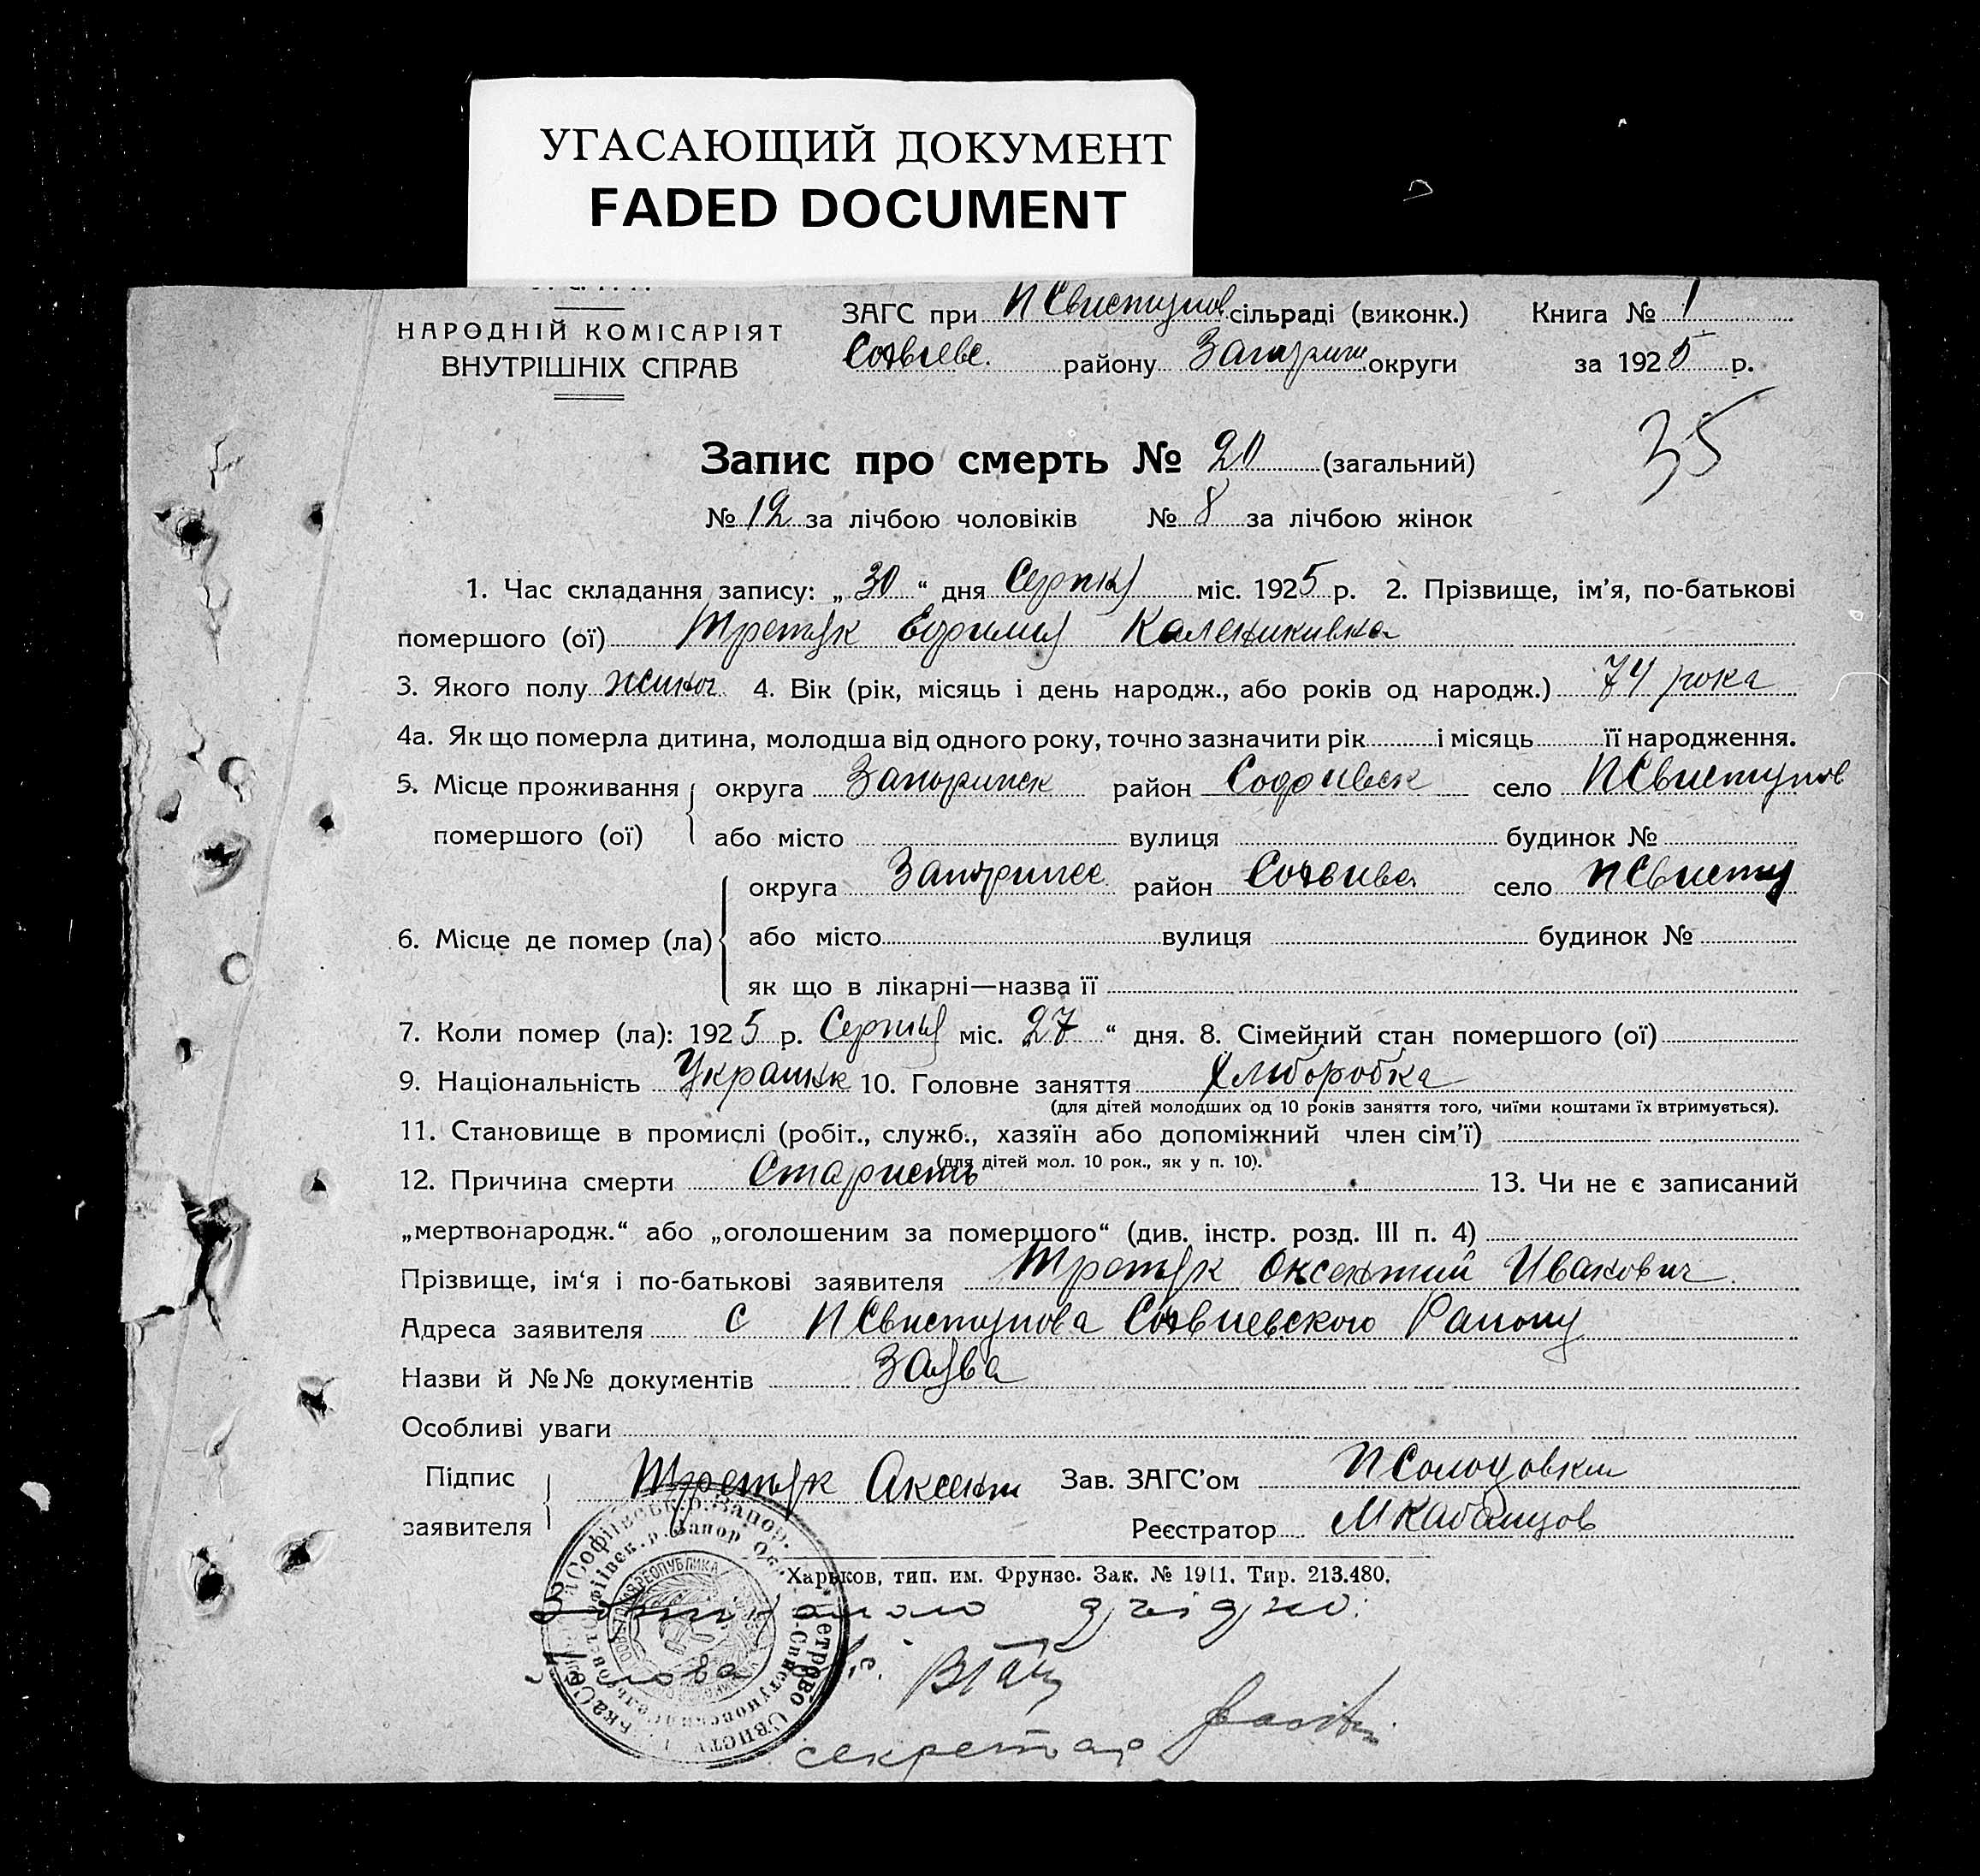 УГАСАЮЩИЙ ДОКУМЕНТ
FADED DOCUMENT
НАРОДНІЙ КОМІСАРІЯТ
ВНУТРІШНІХ СПРАВ
ЗАГС при П Свистунов сільраді (виконк.) Книга № 1
району округи за 1925 р.
35
Запис про смерть № 20 (загальний)
№ 12 за лічбою чоловіків № 8 за лічбою жінок
1. Час складання запису: „30“ дня Серпня міс. 1925 р. 2. Прізвище, ім'я, по-батькові
помершого (ої) Третяк Каленикивна
3. Якого полу жиноч 4. Вік (рік, місяць і день народж., або років од народж.) 74 рока
4а. Як що померла дитина, молодша від одного року, точно зазначити рік і місяць її народження.
5. Місце проживання округа Запоризск район Софиевск село П Свистунов
помершого (ої) або місто вулиця будинок №
округа район село П Свисту
6. Місце де помер (ла) або місто вулиця будинок №
як що в лікарні—назва її
7. Коли помер (ла): 1925 р. Серпня міс. „27“ дня. 8. Сімейний стан помершого (ої)
9. Національність 10. Головне заняття Хлиборобка
(для дітей молодших од 10 років заняття того, чиїми коштами їх втримується).
11. Становище в промислі (робіт., служб., хазяїн або допоміжний член сім'ї)
(для дітей мол. 10 рок., як у п. 10).
12. Причина смерти Старисть 13. Чи не є записаний
„мертвонародж.“ або „оголошеним за помершого“ (див. інстр. розд. III п. 4)
Прізвище, ім'я і по-батькові заявителя Третяк Оксентий Иванович
Адреса заявителя с П Свистунова Софиевского Раиону
Назви й №№ документів Заява
Особливі уваги
Підпис Третяк Аксент Зав. ЗАГС'ом
заявителя Реєстратор
Харьков, тип. им. Фрунзе. Зак. № 1911. Тир. 213.480.
секретар